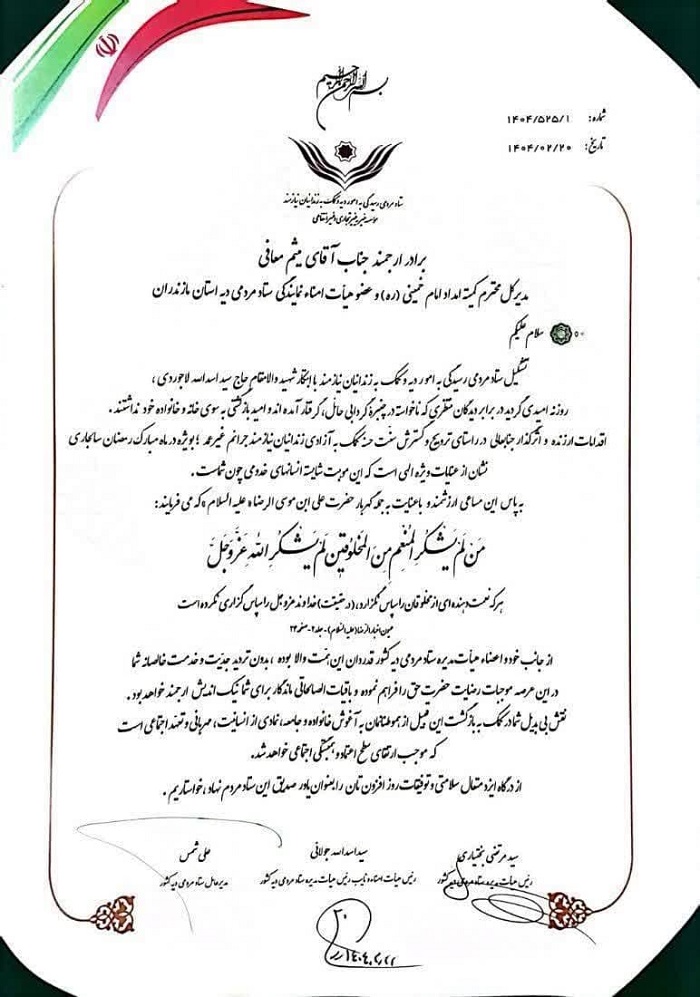 بسم الله الرحمن الرحیم
شماره: ۱۴۰۴/۵۲۵/۱
تاریخ: ۱۴۰۴/۰۲/۲۰
ستاد مردمی رسیدگی به امور دیه و کمک به زندانیان نیازمند
موسسه خیریه غیرتجاری و غیرانتفاعی
برادر ارجمند جناب آقای میثم معافی
مدیرکل محترم کمیته امداد امام خمینی (ره) و عضو هیأت امناء نمایندگی ستاد مردمی دیه استان مازندران
سلام علیکم
تشکیل ستاد مردمی رسیدگی به امور دیه و کمک به زندانیان نیازمند با ابتکار شهید والامقام حاج سید اسدالله لاجوردی ،
روزنه امیدی گردید در برابر دیدگان منتظری که ناخواسته در چنبره گردابی حائل، گرفتار آمده اند و امید بازگشتی به سوی خانه و خانواده خود نداشتند .
اقدامات ارزنده و اثرگذار جنابعالی در راستای ترویج و گسترش سنت حسنه کمک به آزادی زندانیان نیازمند جرائم غیرعمد ؛ بویژه در ماه مبارک رمضان سالجاری
نشان از عنایات ویژه الهی است که این موهبت شایسته انسانهای خدومی چون شماست .
به پاس این مساعی ارزشمند و باعنایت به جمله گهربار حضرت علی ابن موسی الرضا« علیه السلام »که می فرمایند:
مَنْ لَمْ يَشْكُرِ الْمُنْعِمَ مِنَ الْمَخْلُوقِينَ لَمْ يَشْكُرِ اللهَ عَزَّ وَجَلَّ
هرکه نعمت دهنده ای از مخلوقان را سپاس نگزارد، (در حقیقت) خداوند عزوجل را سپاس گزاری نکرده است
عیون اخبار الرضا(علیه السلام)-جلد۲-صفحه۲۴
از جانب خود و اعضاء هیأت مدیره ستاد مردمی دیه کشور قدردان این همت والا بوده ، بدون تردید جدیت و خدمت خالصانه شما
در این عرصه موجبات رضایت حضرت حق را فراهم نموده و باقیات الصالحاتی ماندگار برای شما نیک اندیش ارجمند خواهد بود .
نقش بی بدیل شما در کمک به بازگشت این قبیل از هموطنانمان به آغوش خانواده و جامعه، نمادی از انسانیت ، مهربانی و تعهد اجتماعی است
که موجب ارتقای سطح اعتماد و همبستگی اجتماعی خواهد شد.
از درگاه ایزد متعال سلامتی و توفیقات روز افزون تان را بعنوان یاور صدیق این ستاد مردم نهاد ، خواستاریم .
سید مرتضی بختیاری
رئیس هیات مدیره ستاد مردمی دیه کشور
سیداسدالله جولائی
رئیس هیات امناء و نایب رئیس هیات مدیره ستاد مردمی دیه کشور
علی شمس
مدیرعامل ستاد مردمی دیه کشور